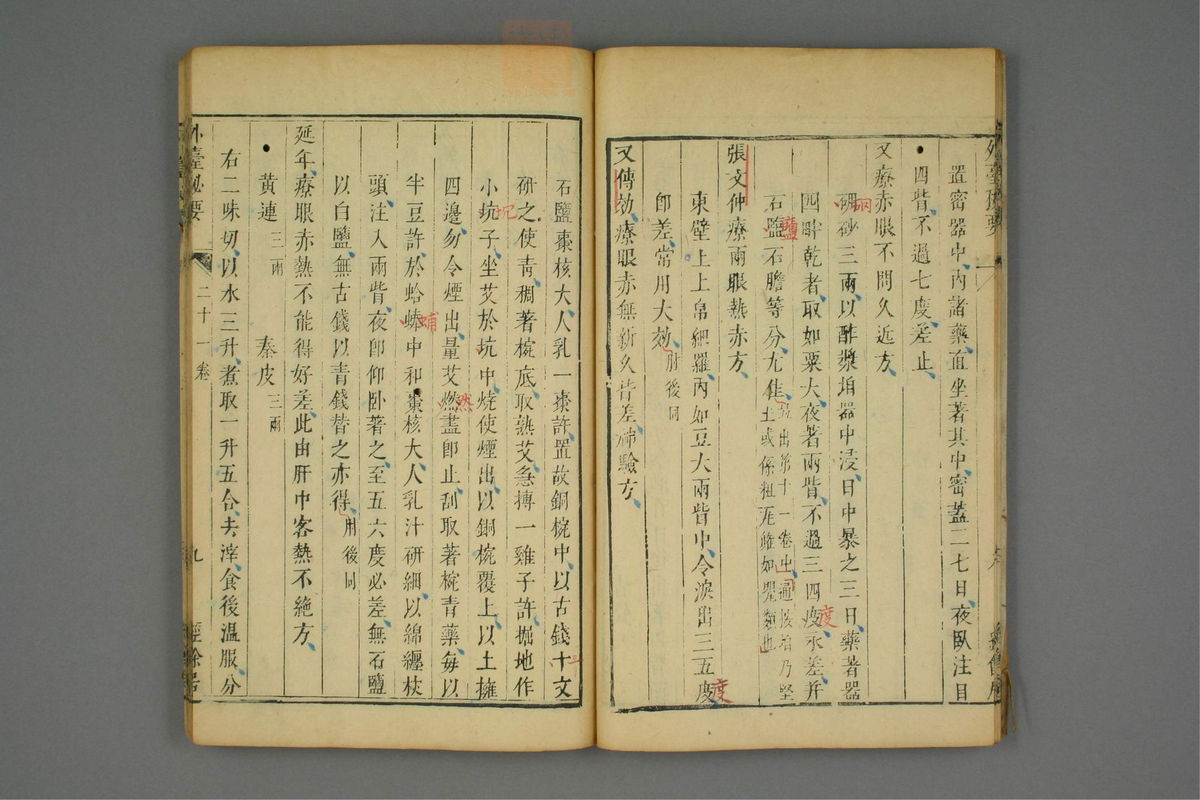 置密器中内諸藥面坐著其中密蓋二七日夜臥注目
四眥不過七度差止
又療赤眼不問久近方
硇砂三兩以酢漿垍器中浸日中暴之三日藥著器
四畔乾者取如粟大夜著兩眥不過三四度永差并
石鹽石膽等分尤佳並出第十一卷中通按垍乃堅
土或係粗产雖如甖類也
張文仲療兩眼熱赤方
東壁上上帛細羅内如豆大兩眥中令淚出三五度
卽差常用大効肘後同
又傳効療眼赤無新久皆差神驗方
石鹽棗核大人乳一棗許置故銅椀中以古錢十文
研之使青稠著椀底取熟艾急摶一雞子許掘地作
小坑子坐艾於坑中燒使煙出以銅椀覆上以土擁
四邊勿令煙出量艾燃盡卽止刮取著椀青藥每以
半豆許於蛤蜯中和棗核大人乳汁研細以綿纏杖
頭注入兩眥夜卽仰臥著之至五六度必差無石鹽
以白鹽無古錢以青錢替之亦得肘後同
延年療眼赤熱不能得好差此由肝中客熱不絶方
黄連三兩 秦皮三兩
右二味切以水三升煮取一升五合去滓食後温服分
外臺祕要 二十一卷 九 經餘居